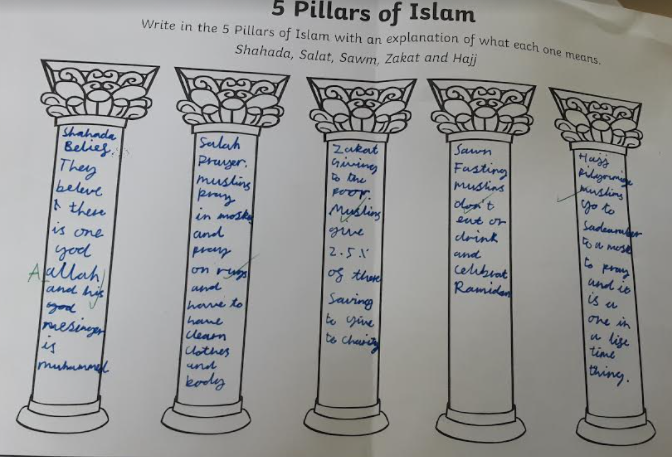 5 Pillars of Islam
Write in the 5 Pillars of Islam with an explanation of what each one means.
Shahada, Salat, Sawm, Zakat and Hajj
Shahada
Belief.
They
beleve
there
is one
god
Aallah
and his
god
mesinger
is
muhammed
Salah
Prayer.
muslims
pray
in moske
and
pray
on rugs
and
have to
have
clearn
clothes
and
body
Zakat
Giving
to the
poor.
Muslims
give
2.5%
of there
Saving
to give
to charity
Sawn
Fasting
muslims
don't
eat or
drink
and
celebrat
Ramidan
Hajj
muslims
go to
to a mosk
to pray
and it
is a
one in
a life
time
thing.